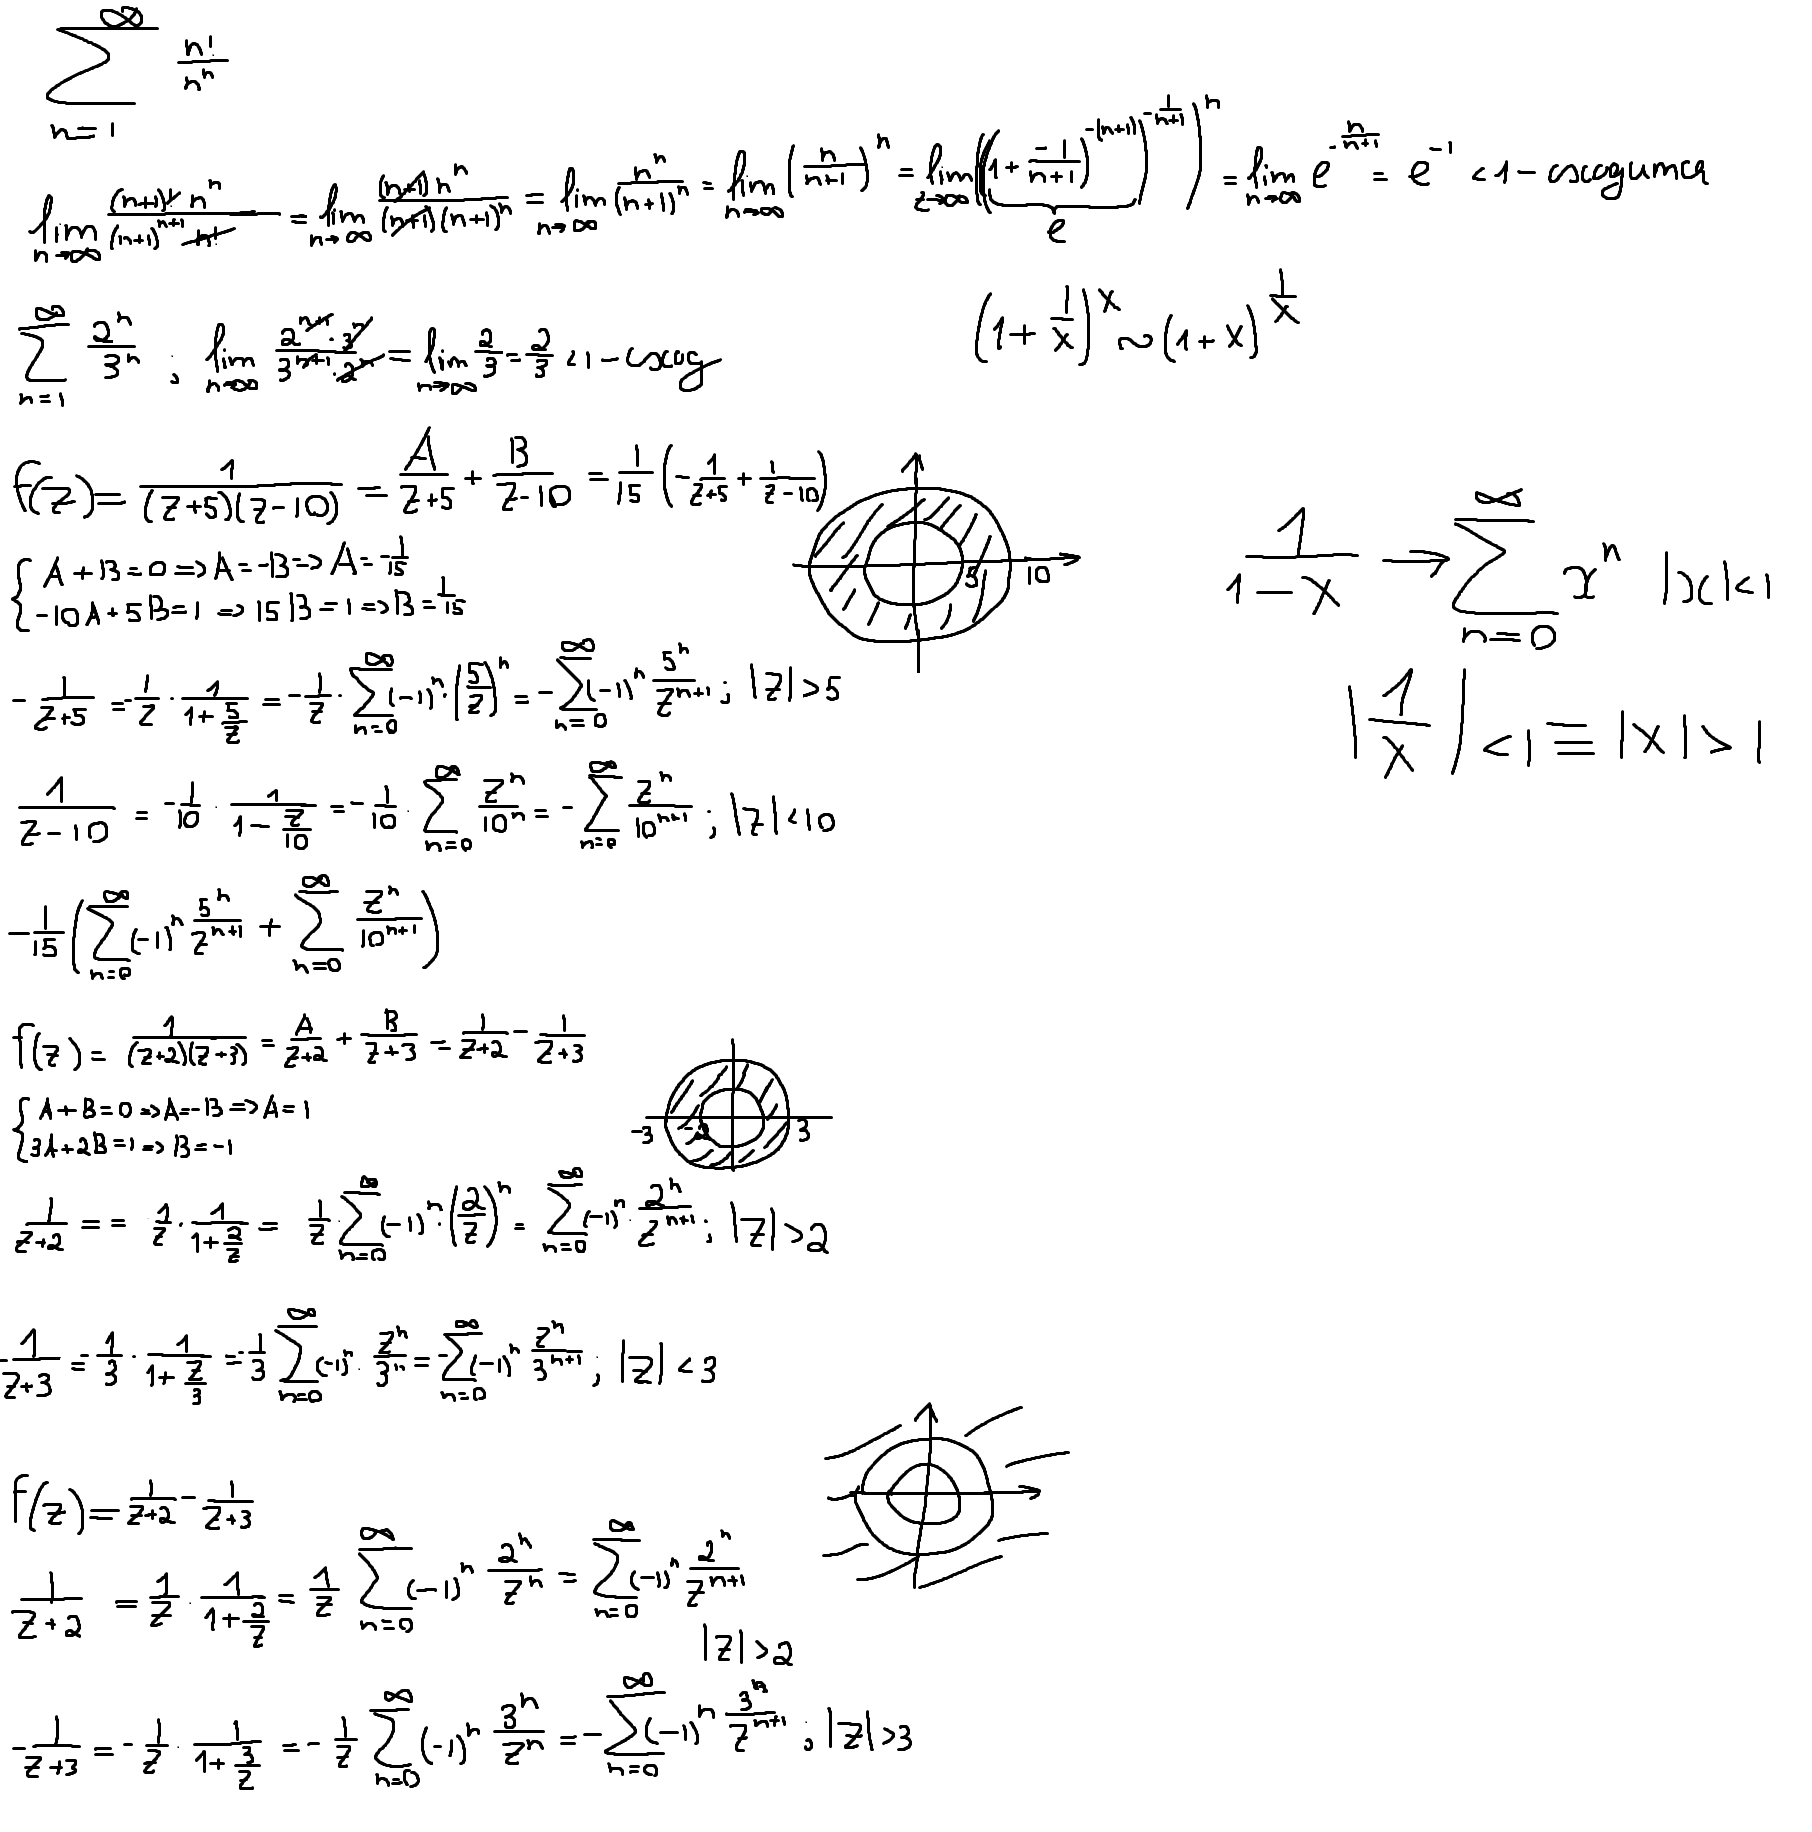 ∑_{n=1}^{∞} n!/n^n
lim_{n→∞} (n+1)! n^n / ((n+1)^{n+1} n!) = lim_{n→∞} (n+1) n^n / ((n+1)(n+1)^n) = lim_{n→∞} n^n/(n+1)^n = lim_{n→∞} (n/(n+1))^n = lim_{z→∞} (((1 + -1/(n+1))^{-(n+1)})^{-1/(n+1)})^n = lim_{n→∞} e^{-n/(n+1)} = e^{-1} < 1 - сходится
e
(1 + 1/x)^x ~ (1 + x)^{1/x}
∑_{n=1}^{∞} 2^n/3^n ; lim_{n→∞} 2^{n+1}·3^n / (3^{n+1}·2^n) = lim_{n→∞} 2/3 = 2/3 < 1 - сход
f(z) = 1/((z+5)(z-10)) = A/(z+5) + B/(z-10) = 1/15 (-1/(z+5) + 1/(z-10))
5 10
1/(1-x) → ∑_{n=0}^{∞} x^n |x|<1
{ A + B = 0 => A = -B => A = -1/15
-10A + 5B = 1 => 15B = 1 => B = 1/15
-1/(z+5) = -1/z · 1/(1+5/z) = -1/z · ∑_{n=0}^{∞} (-1)^n · (5/z)^n = -∑_{n=0}^{∞} (-1)^n 5^n/z^{n+1} ; |z|>5
|1/x| < 1 ≡ |x| > 1
1/(z-10) = -1/10 · 1/(1-z/10) = -1/10 · ∑_{n=0}^{∞} z^n/10^n = -∑_{n=0}^{∞} z^n/10^{n+1} ; |z|<10
-1/15 (∑_{n=0}^{∞} (-1)^n 5^n/z^{n+1} + ∑_{n=0}^{∞} z^n/10^{n+1})
f(z) = 1/((z+2)(z+3)) = A/(z+2) + B/(z+3) = 1/(z+2) - 1/(z+3)
{ A + B = 0 => A = -B => A = 1
3A + 2B = 1 => B = -1
-3 -2 3
1/(z+2) = = 1/z · 1/(1+2/z) = 1/z · ∑_{n=0}^{∞} (-1)^n · (2/z)^n = ∑_{n=0}^{∞} (-1)^n · 2^n/z^{n+1} ; |z|>2
-1/(z+3) = -1/3 · 1/(1+z/3) = -1/3 ∑_{n=0}^{∞} (-1)^n · z^n/3^n = -∑_{n=0}^{∞} (-1)^n z^n/3^{n+1} ; |z|<3
f(z) = 1/(z+2) - 1/(z+3)
1/(z+2) = 1/z · 1/(1+2/z) = 1/z ∑_{n=0}^{∞} (-1)^n 2^n/z^n = ∑_{n=0}^{∞} (-1)^n 2^n/z^{n+1}
|z|>2
-1/(z+3) = -1/z · 1/(1+3/z) = -1/z ∑_{n=0}^{∞} (-1)^n 3^n/z^n = -∑_{n=0}^{∞} (-1)^n 3^n/z^{n+1} ; |z|>3